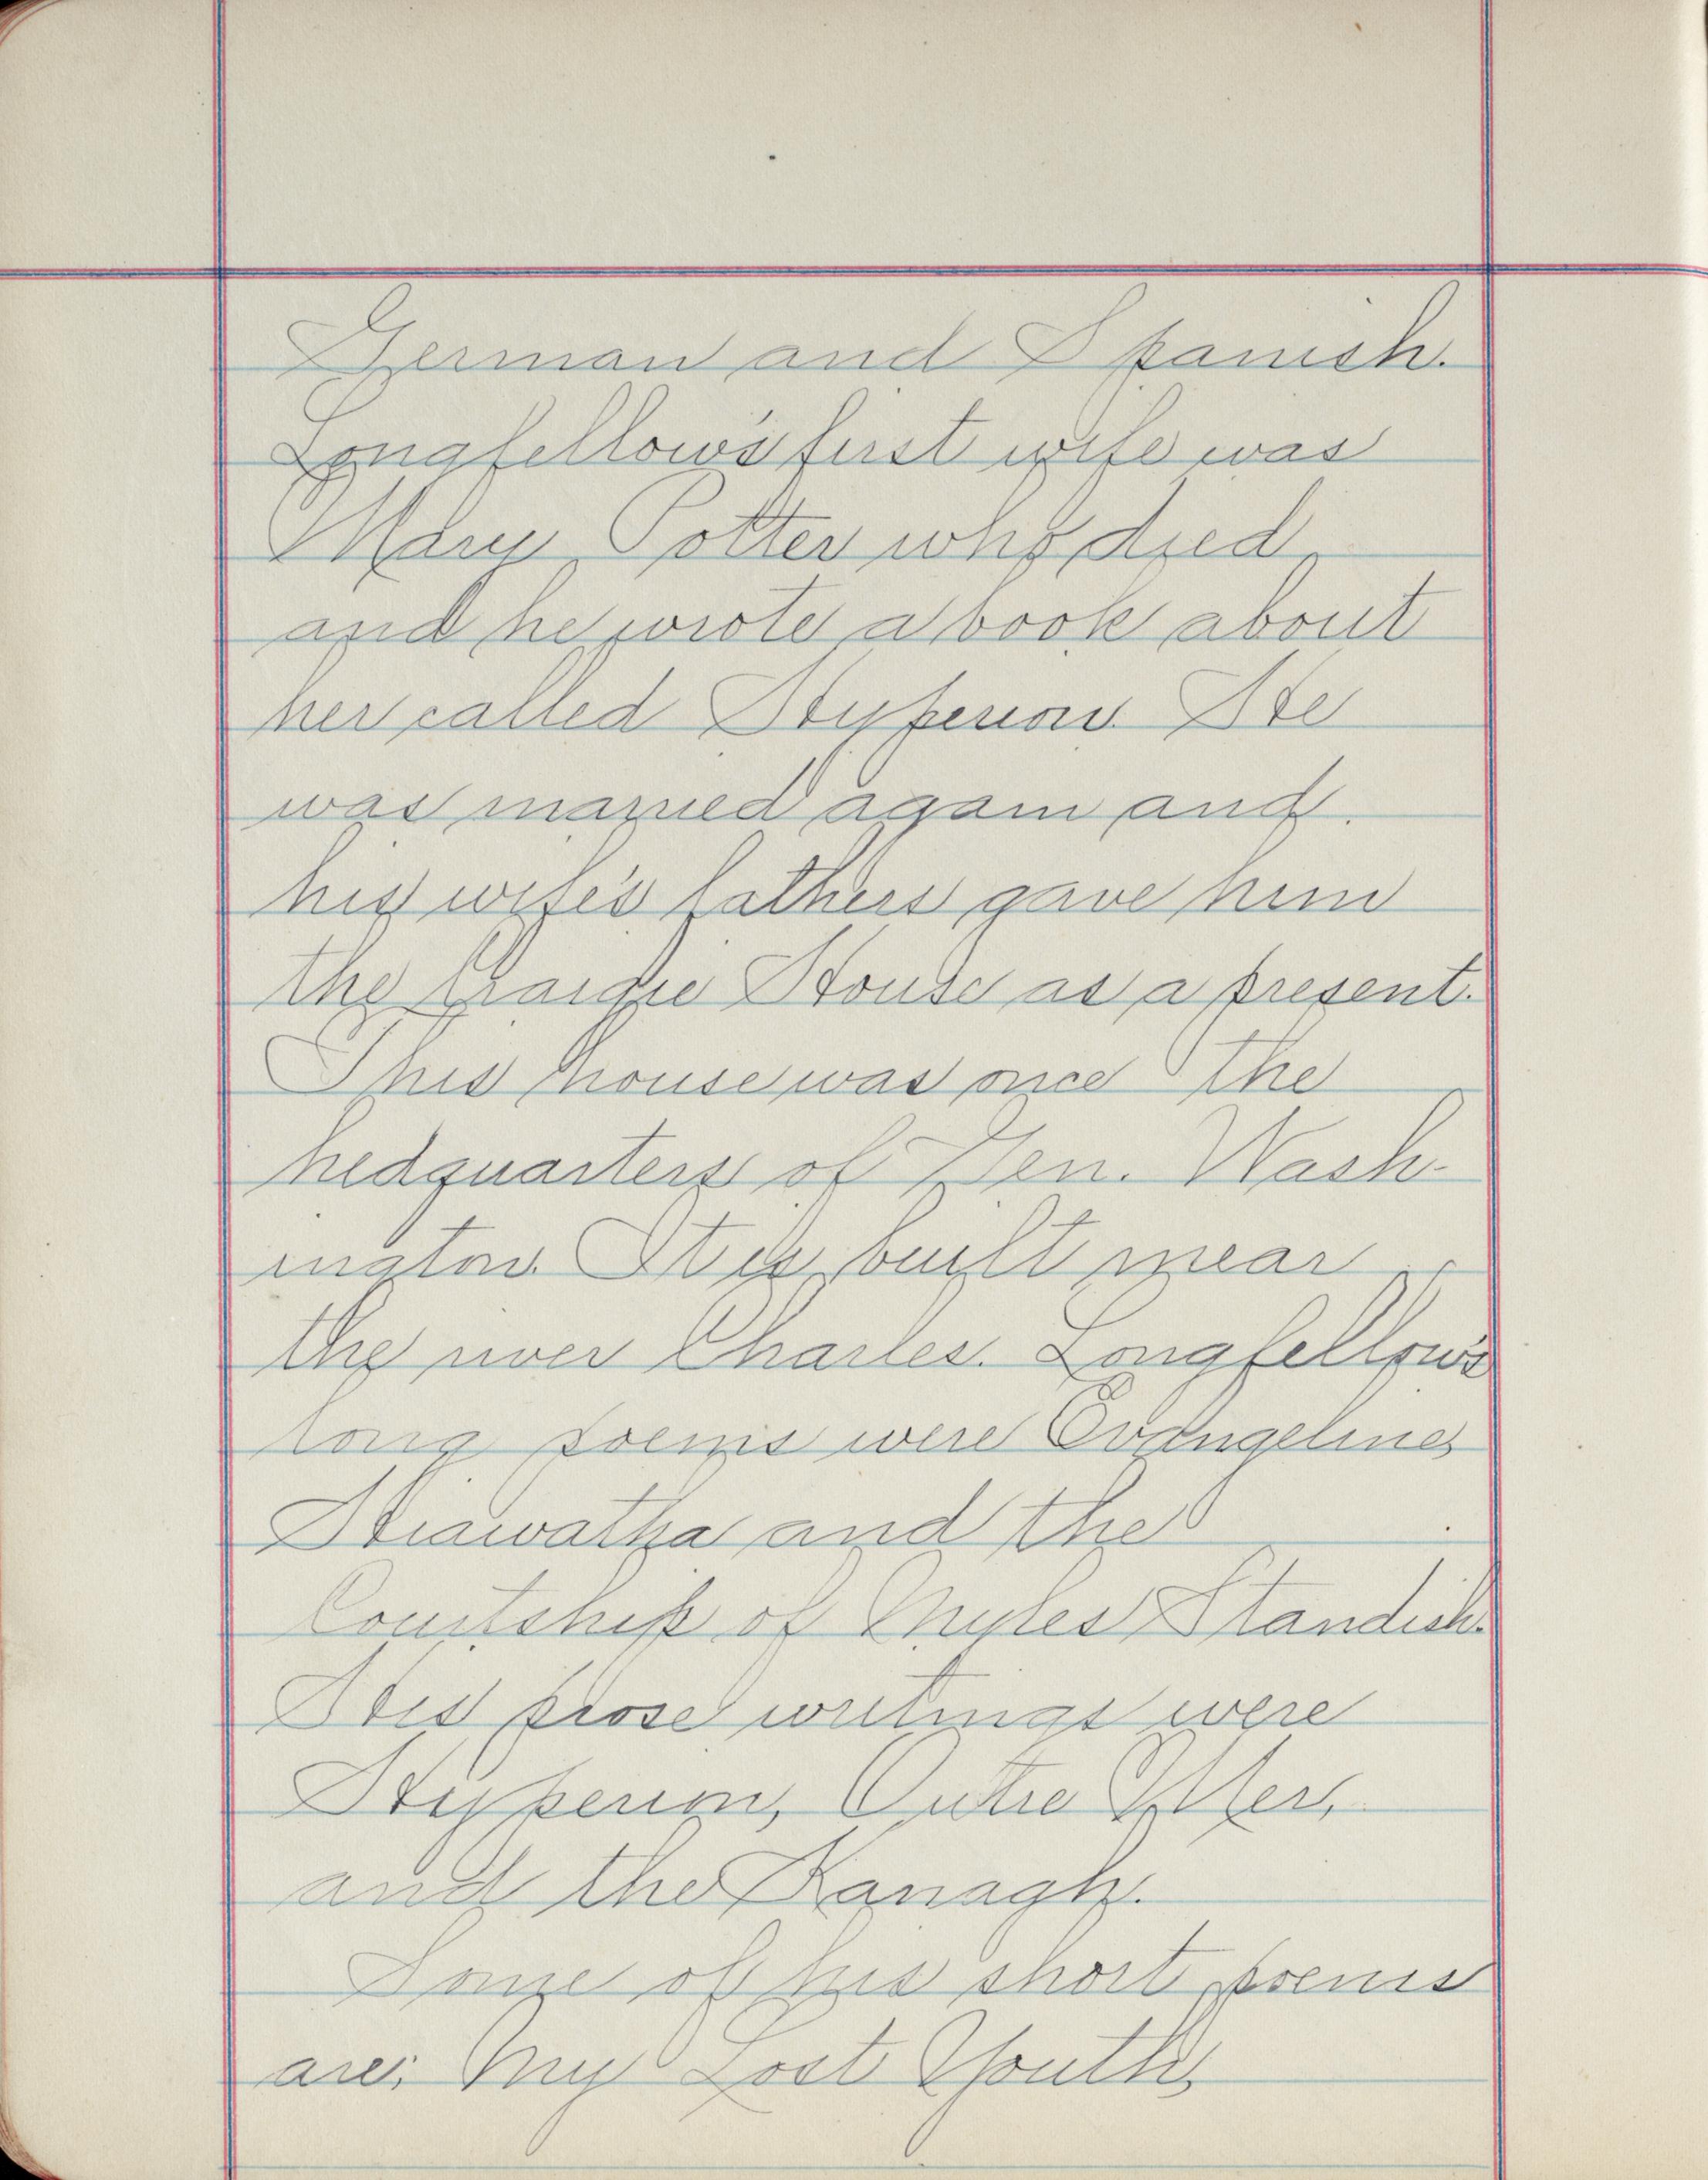 German and Spanish.
Longfellow's first wife was
Mary Potter who died,
and he wrote a book about
her called Hyperion. He
was married again and
his wife's fathers gave him
the Craigie House as a present.
This house was once the
hedquarters of Gen. Wash-
ington. It is built near
the river Charles. Longfellow's
long poems were Evangeline,
Hiawatha and the
Courtship of Myles Standish.
His prose writings were
Hyperion, Outre Mer,
and the Kanagh.
Some of his short poems
are; My Lost Youth,